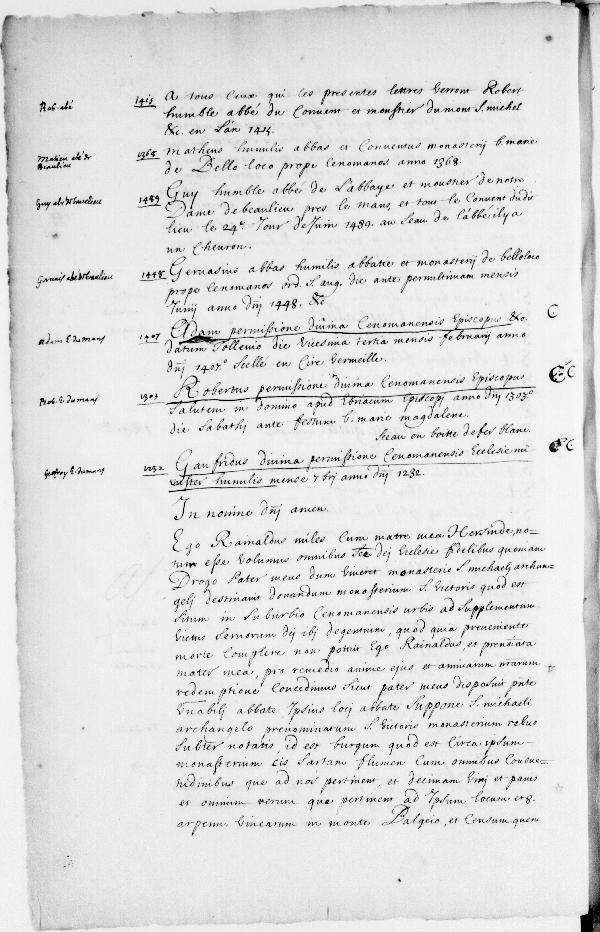 Rob. abé 1415 A tous Ceux qui Les presentes lettres Verront Robert
humble abbé du Convent et moustier du mont S. michel
&c. en L'an 1415.
Mathieu abé de Beaulieu 1368 matheus humilis abbas et Conventus monasterij b. marie
de Bello loco prope Cenomanos anno 1368.
Guy abé de beaulieu 1489 Guy humble abbé de L'abbaye et moustier de notre
Dame de beaulieu pres le mans, et tout le Convent dudit
lieu le 24e. Jour de Juin 1489. au Seau de l'abbé il y a
un Chevron.
Gervais abé de beaulieu 1448 Gervasius abbas humilis abbatie et monasterij de belloloco
prope Cenomanos ord. S. aug. die ante penultimam mensis
Junij anno dnj 1448. &c
Adam E. du mans 1407 Adam permissione divina Cenomanensis Episcopus &c. C
datum die Vicesima tertia mensis februarij anno
dnj 1407.° Scellé en Cire Vermeille.
Rob. E. du mans 1303 Robertus permissione divina Cenomanensis Episcopus C
Salutem in domino apud Ebriacum Episcopj anno dnj 1303.°
die Sabathj ante festum b. marie magdalene.
Seau en boitte de fer blanc.
Geoffroy E. du mans 1232 Gaufridus divina permissione Cenomanensis Ecclesie mi C
nister humilis mense 7brj anno dnj 1232.
In nomine dnj amen.
Ego Rainaldus miles Cum matre mea Hersinde, no-
tum esse Volumus omnibus dej Ecclesie fidelibus quoniam
Drogo Pater meus dum Viveret monasterio S. michaelj archan-
gelj destinavit donandum monasterium S. Victoris quod est
situm in Suburbio Cenomanensis urbis ad Supplementum
Victus Servorum dej ibj degentium, quod quia preveniente
morte Complere non potuit Ego Rainaldus, et prenotata
mater mea, pro remedio anime ejus et animarum nrarum
redemptione Concedimus Sicut pater meus disposuit pnte
Vnabilj abbate Ipsius locj abbate Suppone S. michaeli
archangelo prenominatum S. Victoris monasterium rebus
Subter notatis, id est burgum quod est Circa ipsum
monasterium cis Sartam flumen Cum omnibus Consue-
tudinibus que ad nos pertinent, et decimam Vinj et panis
et omnium rerum que pertinent ad Ipsum locum et 8.
arpenn Vinearum in monte Balgeio, et Censum quem